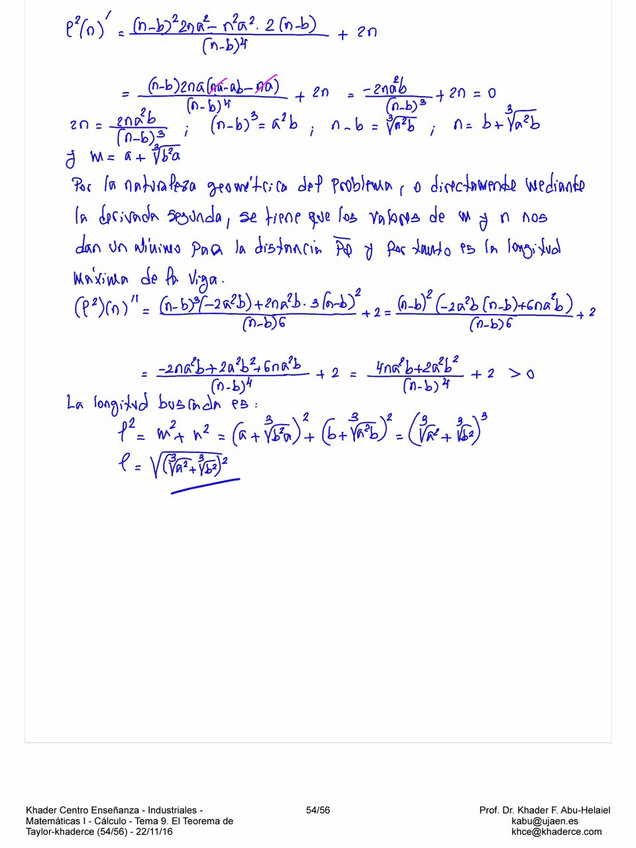 ℓ²(n)' = ((n-b)² 2na² - n²a² · 2(n-b))/(n-b)⁴ + 2n
= ((n-b)2na(na-ab-na))/(n-b)⁴ + 2n = (-2na²b)/(n-b)³ + 2n = 0
2n = (2na²b)/(n-b)³ ; (n-b)³ = a²b ; n-b = ∛(a²b) ; n = b + ∛(a²b)
y m = a + ∛(b²a)
Por la naturaleza geométrica del problema, o directamente mediante
la derivada segunda, se tiene que los valores de m y n nos
dan un mínimo para la distancia PQ y por tanto es la longitud
máxima de la viga.
(ℓ²)(n)'' = ((n-b)³(-2a²b) + 2na²b · 3(n-b)²)/(n-b)6 + 2 = ((n-b)²(-2a²b(n-b) + 6na²b))/(n-b)6 + 2
= (-2na²b + 2a²b² + 6na²b)/(n-b)⁴ + 2 = (4na²b + 2a²b²)/(n-b)⁴ + 2 > 0
La longitud buscada es:
ℓ² = m² + n² = (a + ∛(b²a))² + (b + ∛(a²b))² = (∛a² + ∛b²)³
ℓ = √((∛a² + ∛b²)²)
Khader Centro Enseñanza - Industriales -
Matemáticas I - Cálculo - Tema 9. El Teorema de
Taylor-khaderce (54/56) - 22/11/16
54/56
Prof. Dr. Khader F. Abu-Helaiel
kabu@ujaen.es
khce@khaderce.com